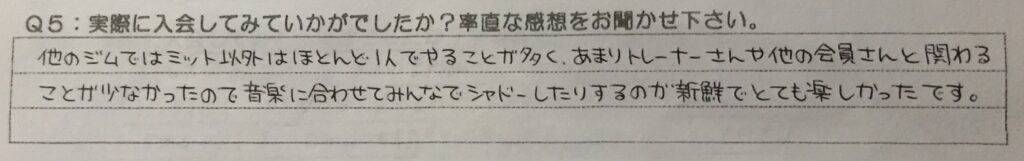 Q5:実際に入会してみていかがでしたか?率直な感想をお聞かせ下さい。
他のジムではミット以外はほとんど1人でやることが多く、あまりトレーナーさんや他の会員さんと関わる
ことが少なかったので音楽に合わせてみんなでシャドーしたりするのが新鮮でとても楽しかったです。